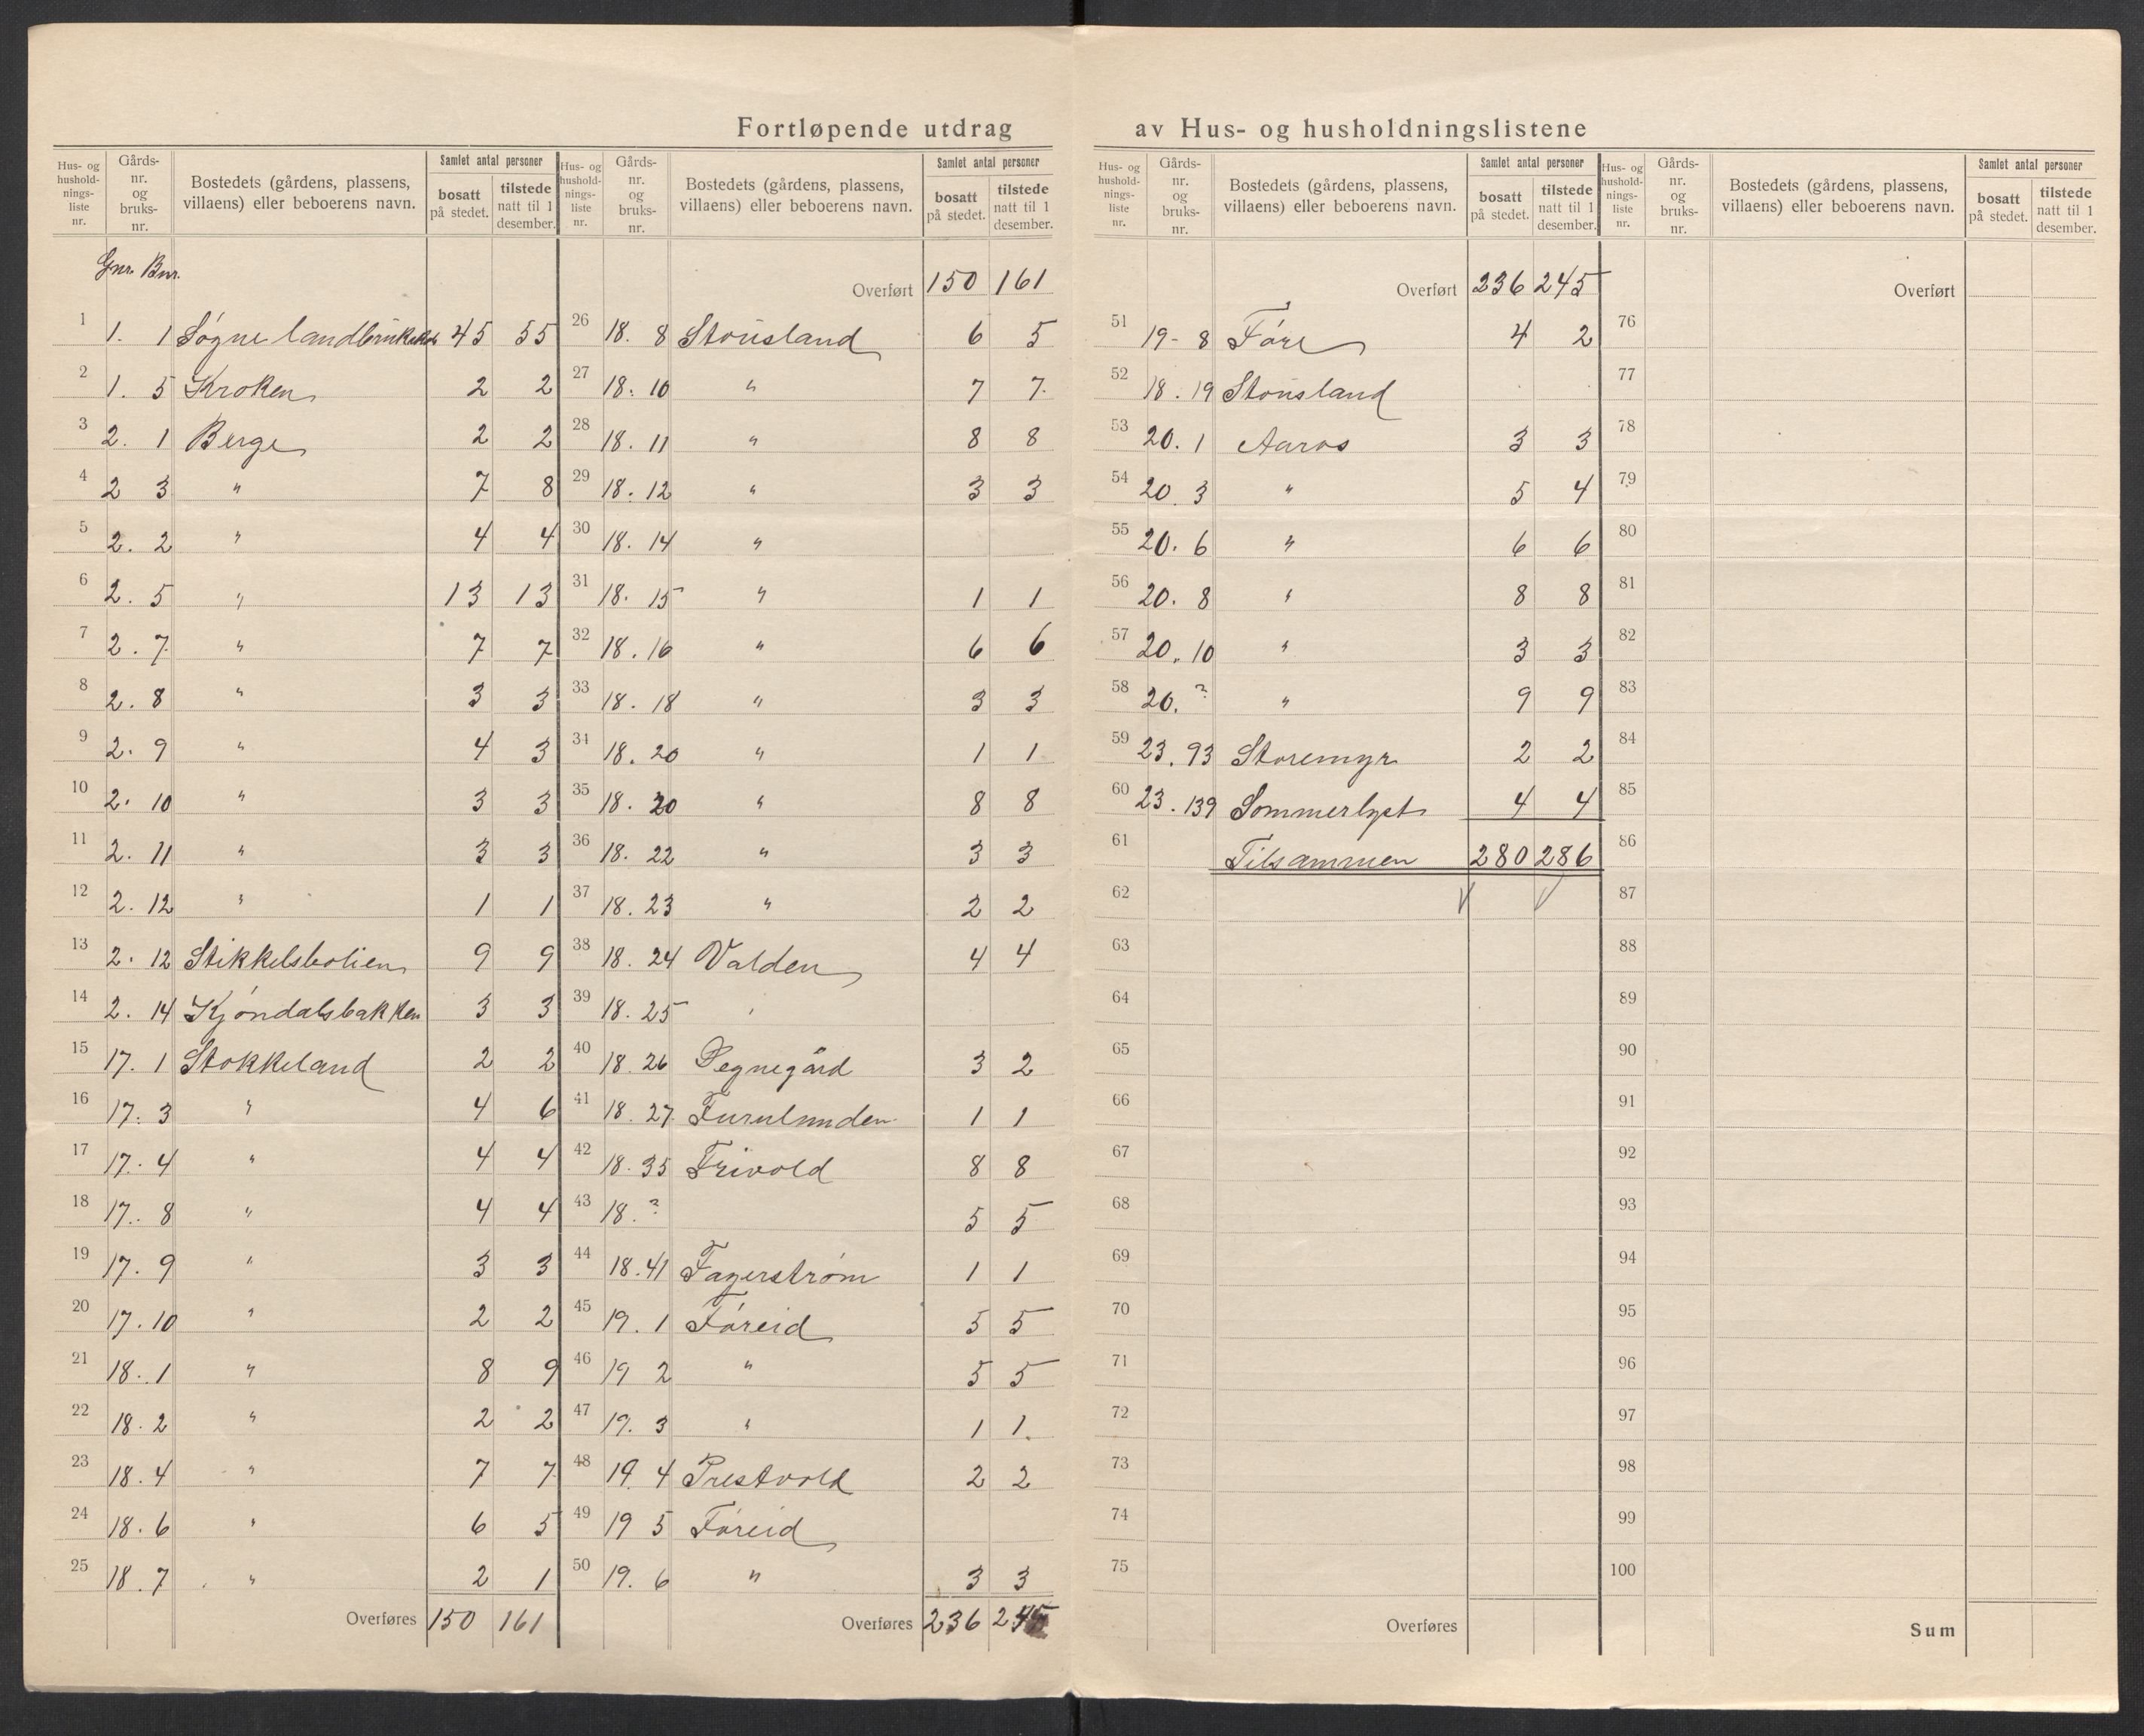 Fortløpende utdrag av Hus- og husholdningslistene
Hus- og hushold-nings-liste nr. Gårds-nr. og bruks-nr. Bostedets (gårdens, plassens, villaens) eller beboerens navn. Samlet antal personer bosatt på stedet. tilstede natt til 1 desember.
Gnr. Bnr.
1 1. 1 Søgne landbrukskole 45 55
2 1. 5 Kroken 2 2
3 2. 1 Berge 2 2
4 2 3 " 7 8
5 2. 2 " 4 4
6 2. 5 " 13 13
7 2. 7 " 7 7
8 2. 8 " 3 3
9 2. 9 " 4 3
10 2. 10 " 3 3
11 2. 11 " 3 3
12 2. 12 " 1 1
13 2. 12 9 9
14 2. 14 Kjøndalsbakken 3 3
15 17. 1 Stokkeland 2 2
16 17. 3 " 4 6
17 17. 4 " 4 4
18 17. 8 " 4 4
19 17. 9 " 3 3
20 17. 10 " 2 2
21 18. 1 " 8 9
22 18. 2 " 2 2
23 18. 4 " 7 7
24 18. 6 " 6 5
25 18. 7 " 2 1
Overføres 150 161
Hus- og hushold-nings-liste nr. Gårds-nr. og bruks-nr. Bostedets (gårdens, plassens, villaens) eller beboerens navn. Samlet antal personer bosatt på stedet. tilstede natt til 1 desember.
Overført 150 161
26 18. 8 Stousland 6 5
27 18. 10 " 7 7
28 18. 11 " 8 8
29 18. 12 " 3 3
30 18. 14 "
31 18. 15 " 1 1
32 18. 16 " 6 6
33 18. 18 " 3 3
34 18. 20 " 1 1
35 18. 20 " 8 8
36 18. 22 " 3 3
37 18. 23 " 2 2
38 18. 24 Valden 4 4
39 18. 25 "
40 18. 26 3 2
41 18. 27 Furulunden 1 1
42 18. 35 Frivold 8 8
43 18. ? 5 5
44 18. 41 Fagerstrøm 1 1
45 19. 1 Føreid 5 5
46 19 2 " 5 5
47 19. 3 " 1 1
48 19. 4 Prestvold 2 2
49 19 5 Føreid
50 19. 6 " 3 3
Overføres 236 245
Hus- og hushold-nings-liste nr. Gårds-nr. og bruks-nr. Bostedets (gårdens, plassens, villaens) eller beboerens navn. Samlet antal personer bosatt på stedet. tilstede natt til 1 desember.
Overført 236 245
51 19- 8 Føre 4 2
52 18. 19 Stousland
53 20. 1 Aaros 3 3
54 20. 3 " 5 4
55 20. 6 " 6 6
56 20. 8 " 8 8
57 20. 10 " 3 3
58 20. ? " 9 9
59 23. 93 Storemyr 2 2
60 23. 139 Sommerlyst 4 4
61 Tilsammen 280 286
62
63
64
65
66
67
68
69
70
71
72
73
74
75
Overføres
Hus- og hushold-nings-liste nr. Gårds-nr. og bruks-nr. Bostedets (gårdens, plassens, villaens) eller beboerens navn. Samlet antal personer bosatt på stedet. tilstede natt til 1 desember.
Overført
76
77
78
79
80
81
82
83
84
85
86
87
88
89
90
91
92
93
94
95
96
97
98
99
100
Sum